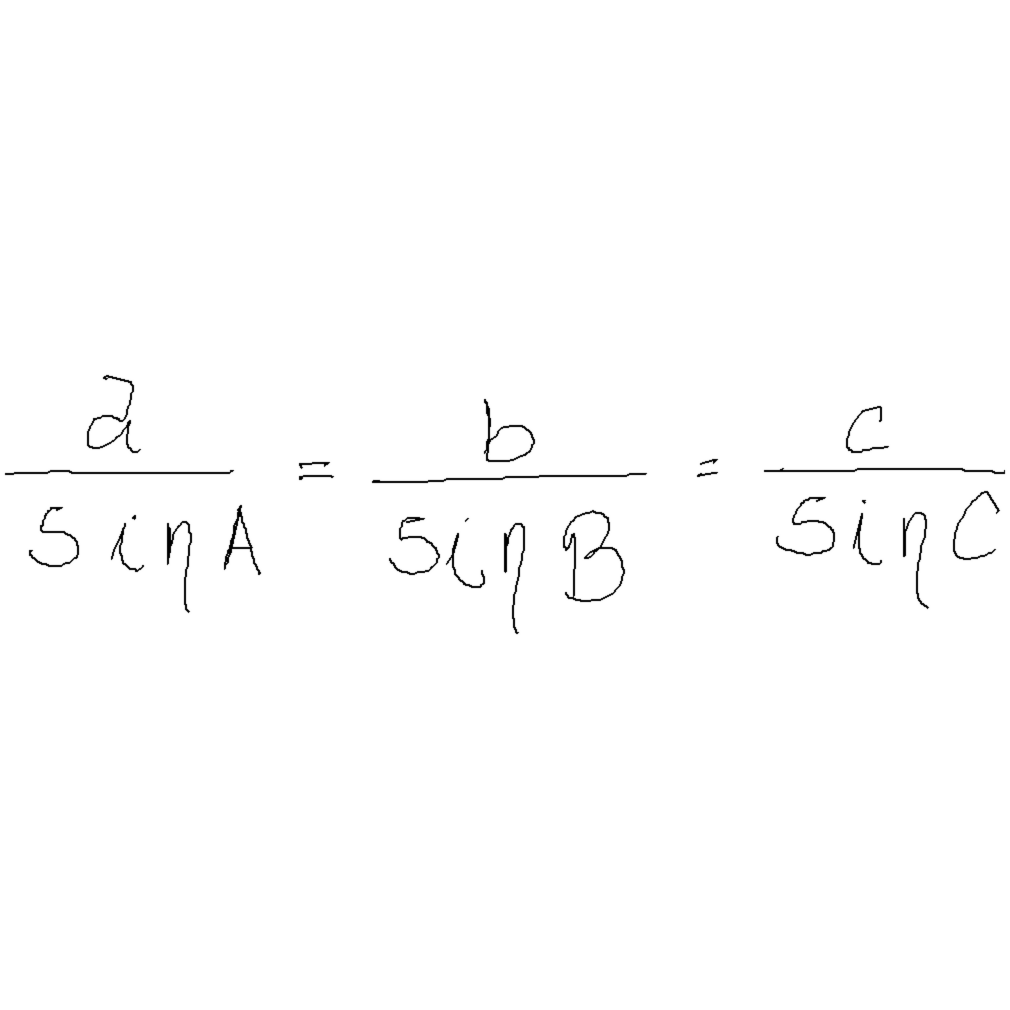 a/sin A = b/sin B = c/sin C